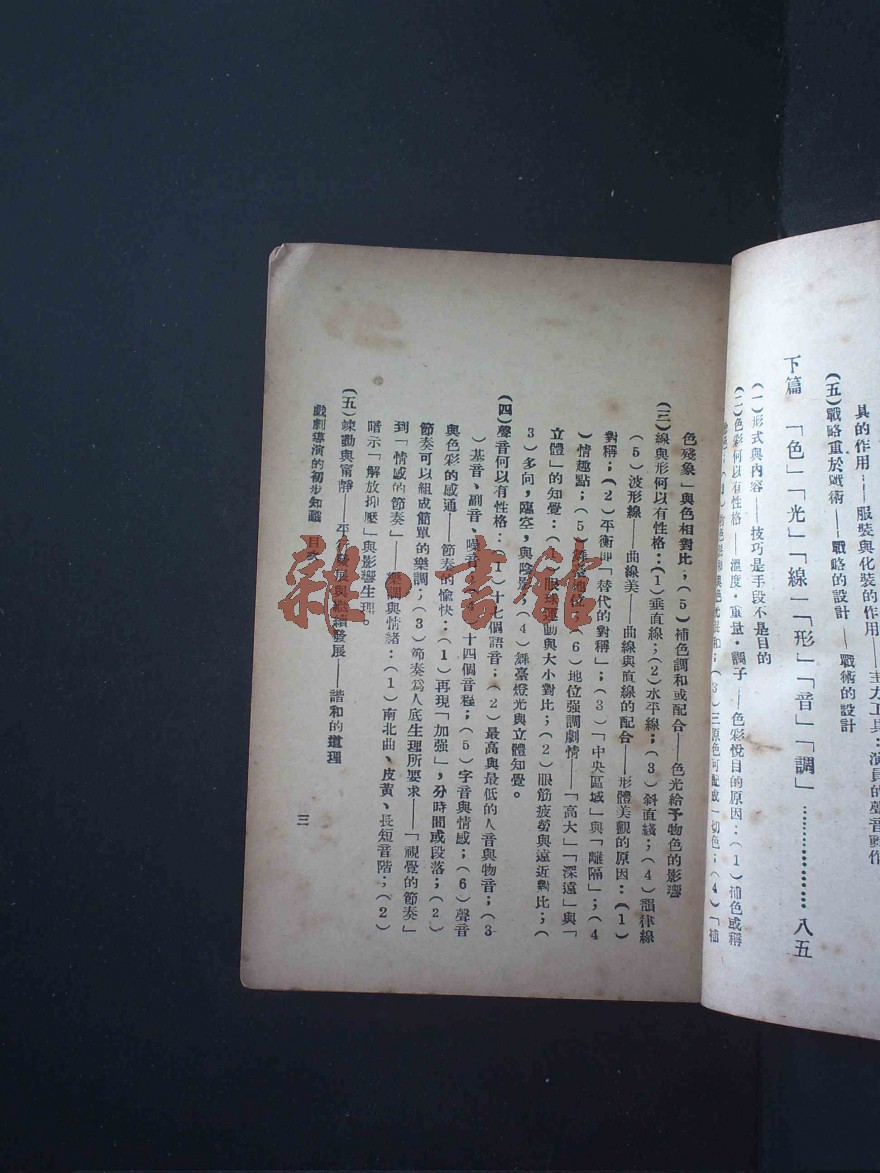 具的作用：——服裝與化裝的作用——主力工具：演員的聲音動作
(五)戰略重於戰術——戰略的設計——戰術的設計
下篇 「色」「光」「線」「形」「音」「調」………………八五
(一)形式與內容——技巧是手段不是目的
(二)色彩何以有性格——溫度·重量·調子——色彩悅目的原因：(1)補色或稱
(3)三原色可配成一切色；(4)「補
色殘象」與色相對比；(5)補色調和或配合——色光給予物色的影響
(三)線與形何以有性格：(1)垂直線；(2)水平線；(3)斜直綫；(4)韻律線
(5)波形線——曲線美——曲線與直線的配合——形體美觀的原因：(1)
對稱；(2)平衡即「替代的對稱」；(3)「中央區域」與「離隔」；(4
)情趣點；(5)舞臺地位；(6)地位强調劇情——「高大」「深遠」與「
立體」的知覺：(1)眼球運動與大小對比；(2)眼筋疲勞與遠近對比；(
3)多向，臨空，與陰影；(4)舞臺燈光與立體知覺。
(四)聲音何以有性格：(1)十七個語音；(2)最高與最低的人音與物音；(3
)基音、副音、噪音；(4)十四個音程；(5)字音與情感；(6)聲音
與色彩的感通——節奏的愉快：(1)再現「加强」，分時間或段落；(2)
節奏可以組成簡單的樂調；(3)節奏爲人底生理所要求——「視覺的節奏」
到「情感的節奏」——樂調與情緒：(1)南北曲、皮黃、長短音階；(2)
暗示「解放抑壓」與影響生理。
(五)竦動與甯靜——平行發展與繼續發展——諧和的道理
戲劇導演的初步知識 目次
三
雜·書館